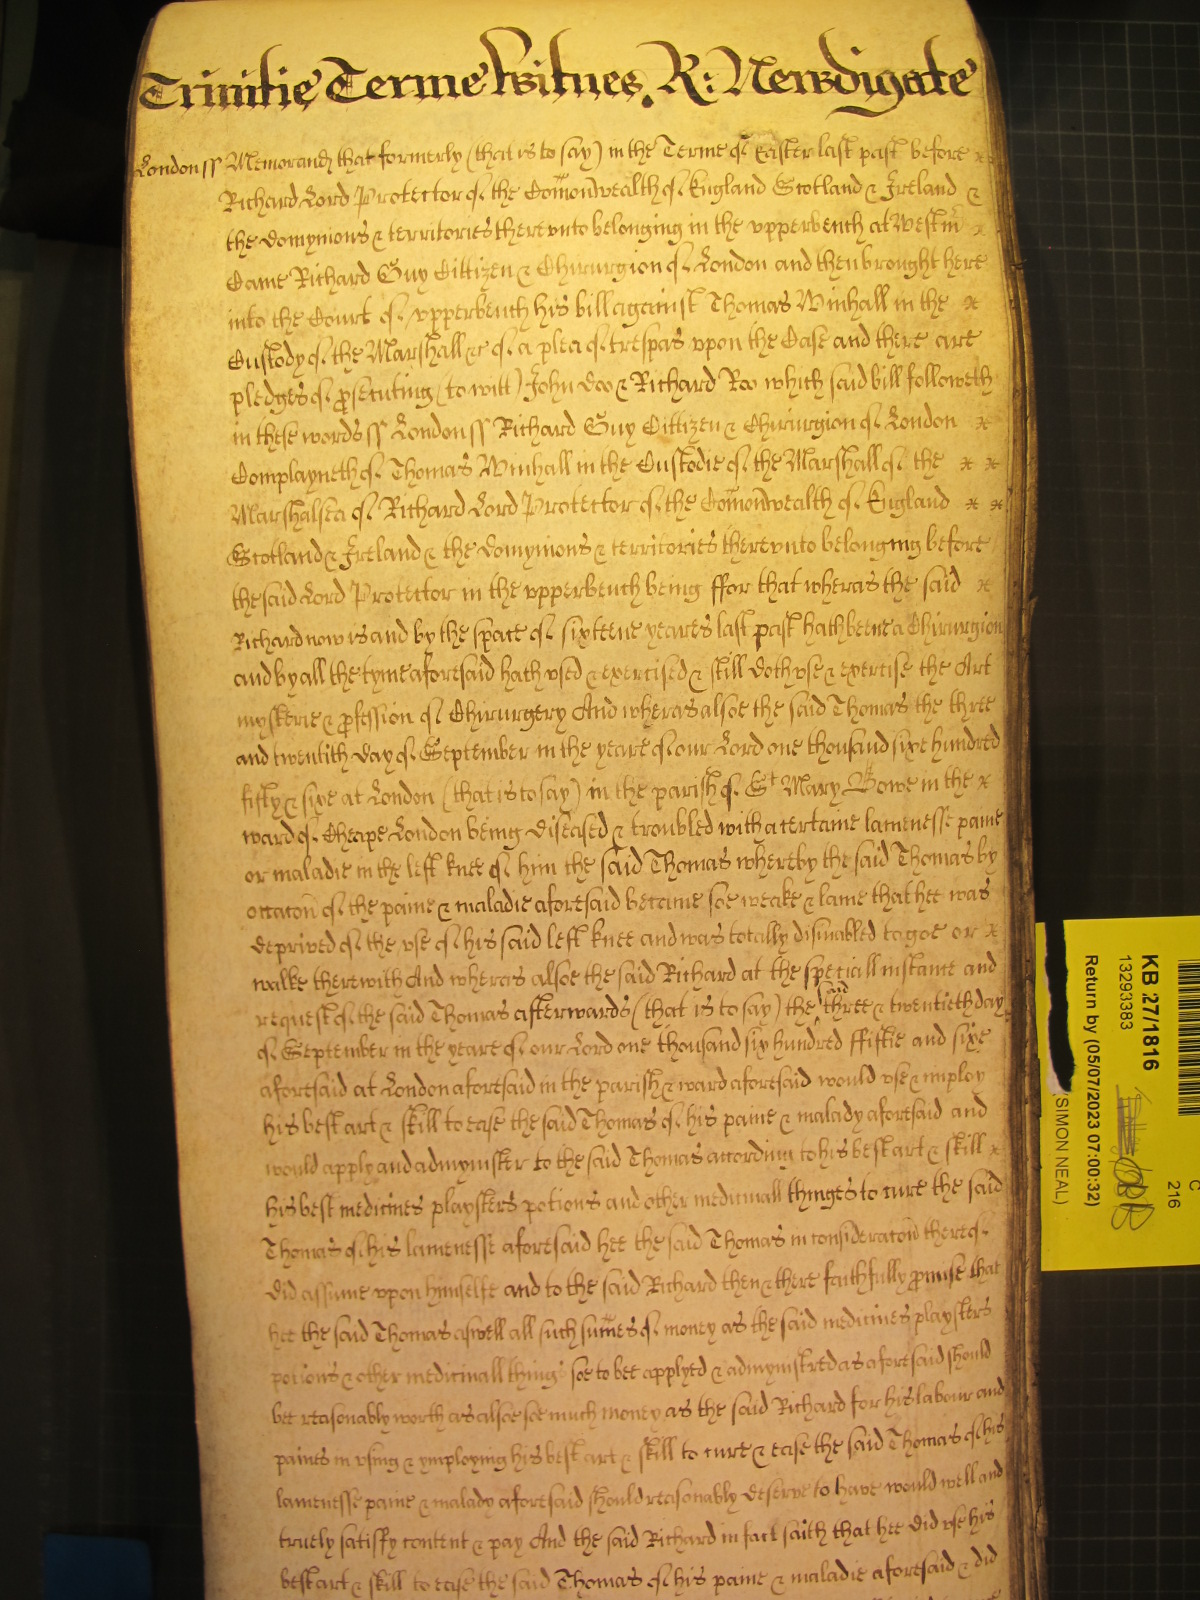 Trinitie Terme Witnes. R: Newdigate
London ss Memorand that formerly (that is to say) in the Terme of Easter last past before
Richard Lord Protector of the Comonwealth of England Scotland & Ireland &
the domynions & territories therevnto belonging in the vpperbench at Westm
Came Richard Guy Cittizen & Chirurgion of London and then brought here
into the Court of vpperbench his bill against Thomas Winhall in the
Custody of the Marshall &c of a plea of trespas vpon the Case and there are
pledges of prosecuting (to witt) John Doo & Richard Roo which said bill followeth
in these words ss London ss Richard Guy Cittizen & Chirurgion of London
Complayneth of Thomas Winhall in the Custodie of the Marshall of the
Marshalsea of Richard Lord Protector of the Comonwealth of England
Scotland & Ireland & the domynions & territories therevnto belonging before
the said Lord Protector in the vpperbench being ffor that wheras the said
Richard now is and by the space of sixteene yeares last past hath beene a Chirurgion
and by all the tyme aforesaid hath vsed & exercised & still doth vse & exercise the Art
mysterie & pfession of Chirurgery And wheras alsoe the said Thomas the three
and twentith day of September in the yeare of our Lord one thousand sixe hundred
fifty & sixe at London (that is to say) in the parish of St Mary Bowe in the
ward of Cheape London being diseased & troubled with a certaine lamenesse paine
or maladie in the left knee of him the said Thomas whereby the said Thomas by
occacon of the paine & maladie aforesaid became soe weake & lame that hee was
deprived of the vse of his said left knee and was totally disinabled to goe or
walke therewith And wheras alsoe the said Richard at the speciall instance and
request of the said Thomas afterwards (that is to say) the said three & twentieth day
of September in the yeare of our Lord one thousand six hundred ffiftie and sixe
aforesaid at London aforesaid in the parish & ward aforesaid would vse & imploy
his best art & skill to ease the said Thomas of his paine & malady aforesaid and
would apply and admynister to the said Thomas according to his best art & skill
his best medicines playsters potions and other medicinall thinges to cure the said
Thomas of his lamenesse aforesaid hee the said Thomas in consideracon thereof
did assume vpon himselfe and to the said Richard then & there faithfully pmise that
hee the said Thomas aswell all such sumes of money as the said medicines playsters
potions & other medicinall things soe to bee applyed & admynistred as aforesaid should
bee reasonably worth as alsoe soe much money as the said Richard for his labour and
paines in vsing & ymploying his best art & skill to cure & ease the said Thomas of his
lamenesse paine & malady aforesaid should reasonably deserve to have would well and
truely satisfy content & pay And the said Richard in fact saith that hee did vse his
best art & skill to ease the said Thomas of his paine & maladie aforesaid & did
KB 27/1816
13293383
Return by (05/07/2023 07:00:32)
(SIMON NEAL)
C
216